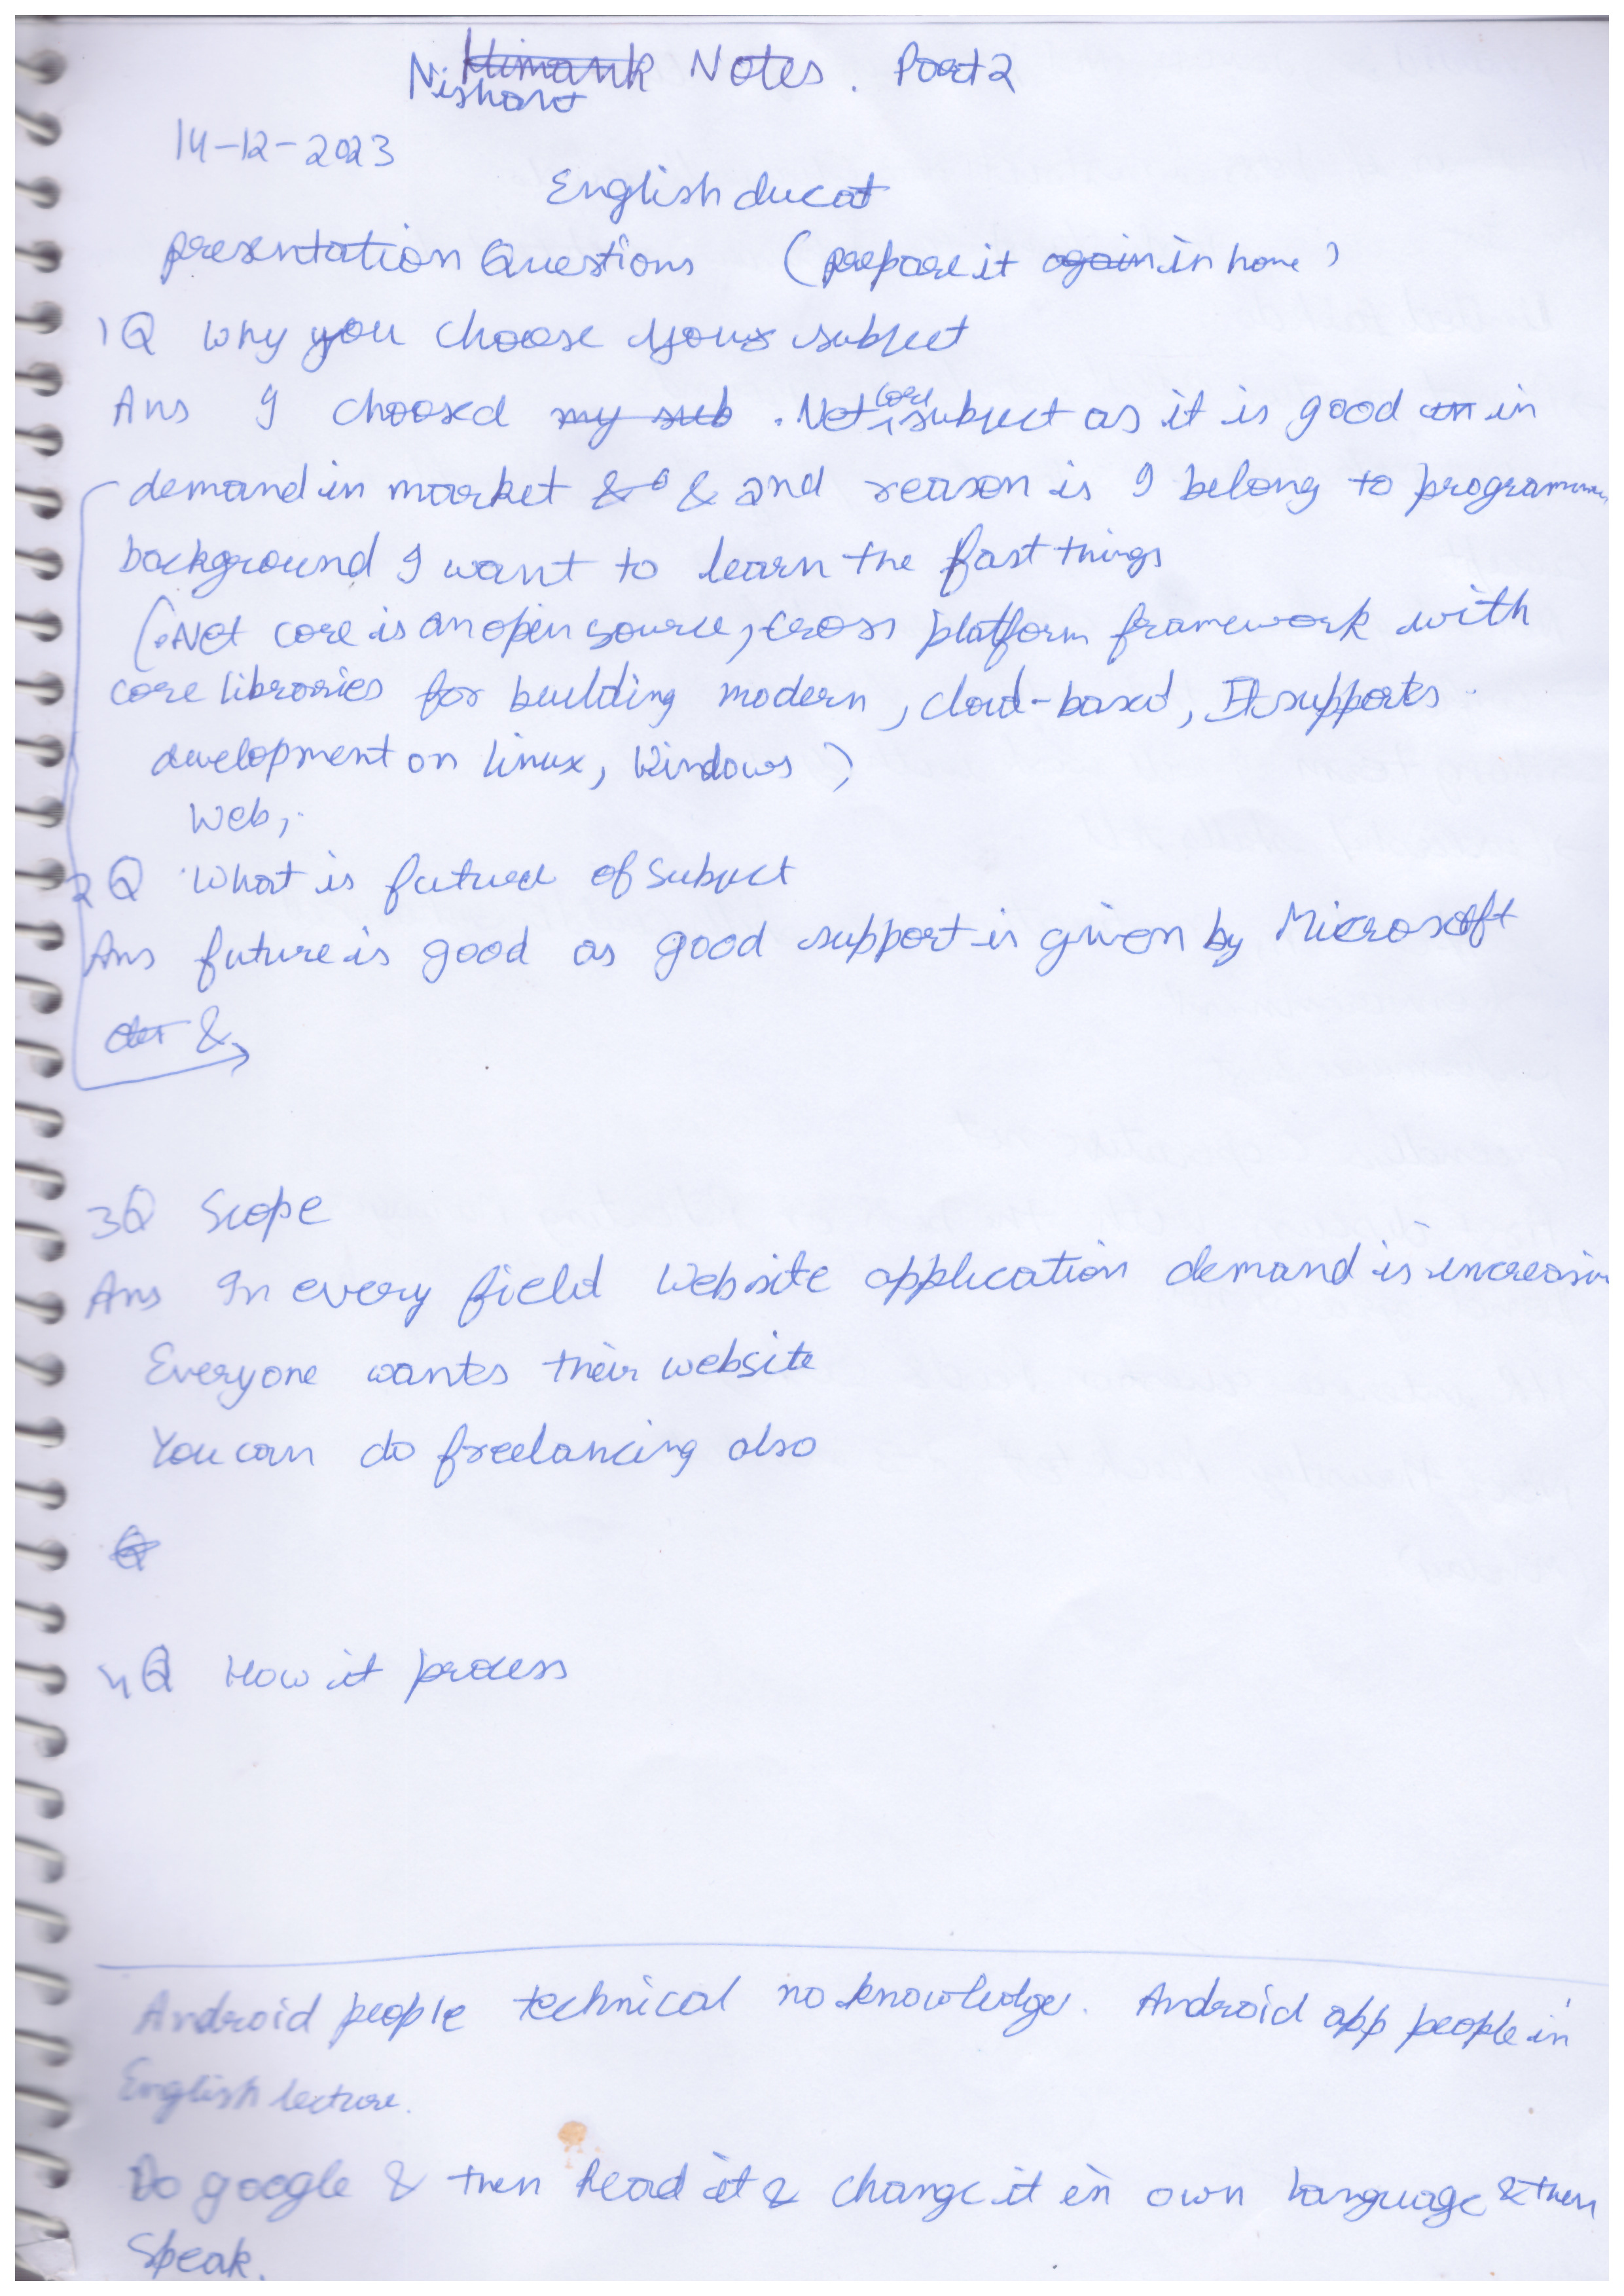 Himank Notes. Part 2
Nishant
14-12-2023
English ducat
presentation Questions (prepare it again in home)
1Q Why you choose your subject
Ans I choosed my sub .Net core subject as it is good on in
demand in market & & 2nd reason is I belong to programming
background I want to learn the fast things
(.Net core is an open source, cross platform framework with
core libraries for building modern, cloud-based, It supports
development on linux, Windows)
Web,
2Q What is future of Subject
Ans future is good as good support is given by Microsoft
&
3Q Scope
Ans In every field Website application demand is increasin
Everyone wants their website
You can do freelancing also
Q
4Q How it process
Android people technical no knowledge. Android app people in
English lecture.
Do google & then Read it & change it in own language & then
Speak.